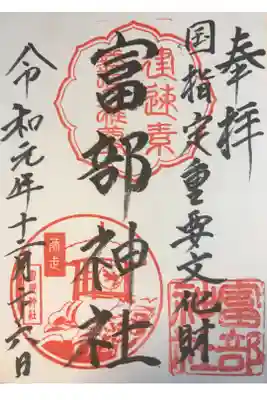 奉拝
国指定重要文化財
富部神社
令和元年十二月二十六日
富部
神社
師走